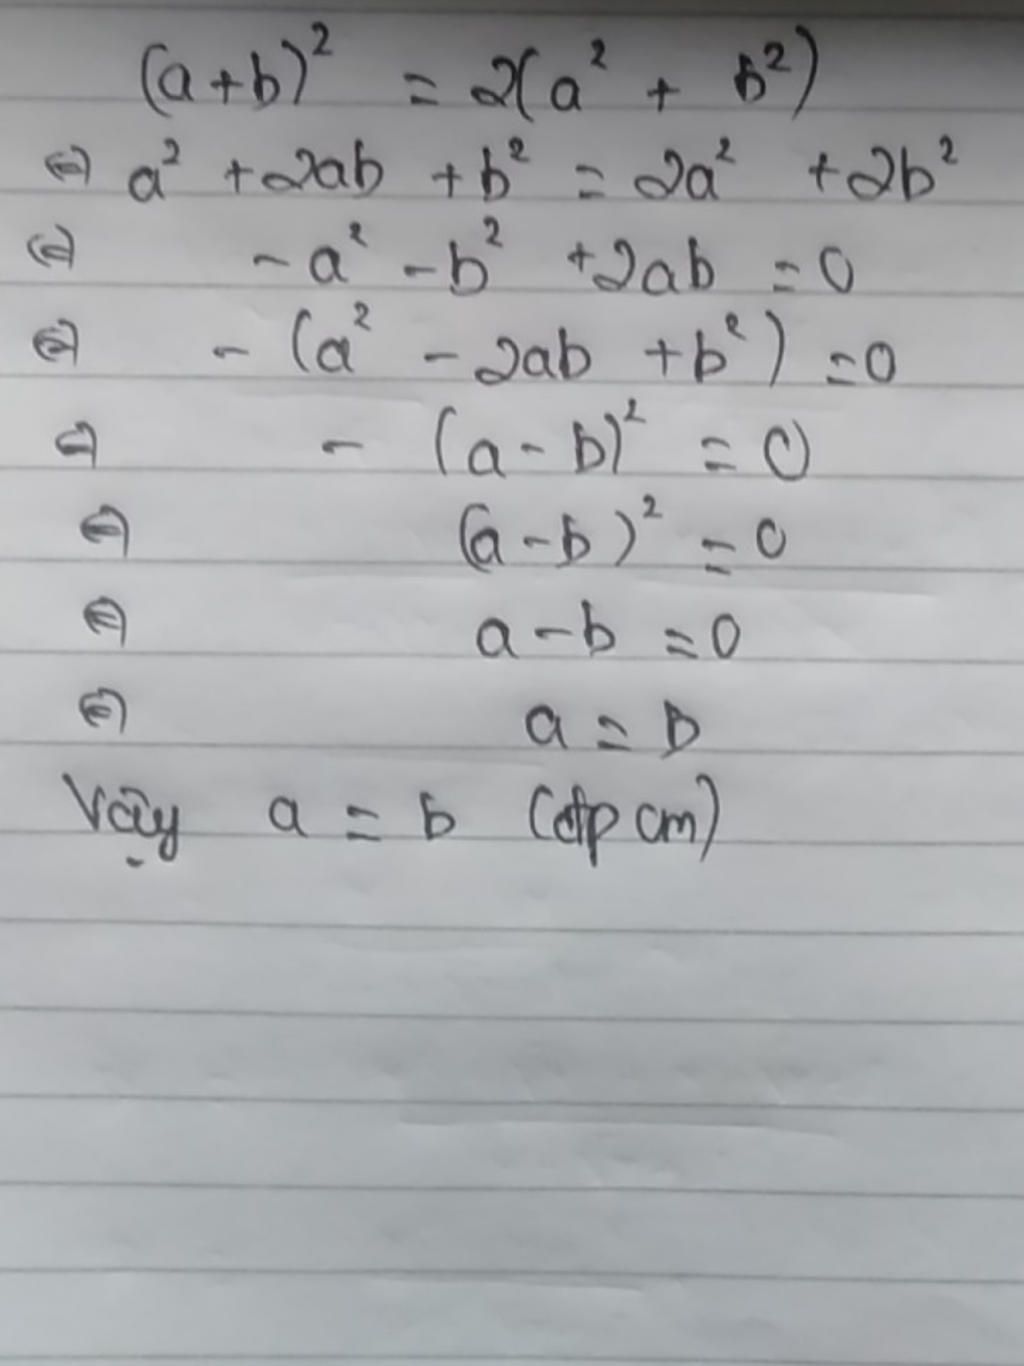 (a+b)² = 2(a² + b²)
⇔ a² + 2ab + b² = 2a² + 2b²
⇔ - a² - b² + 2ab = 0
⇔ - (a² - 2ab + b²) = 0
⇔ - (a - b)² = 0
⇔ (a - b)² = 0
⇔ a - b = 0
⇔ a = b
Vậy a = b (đpcm)